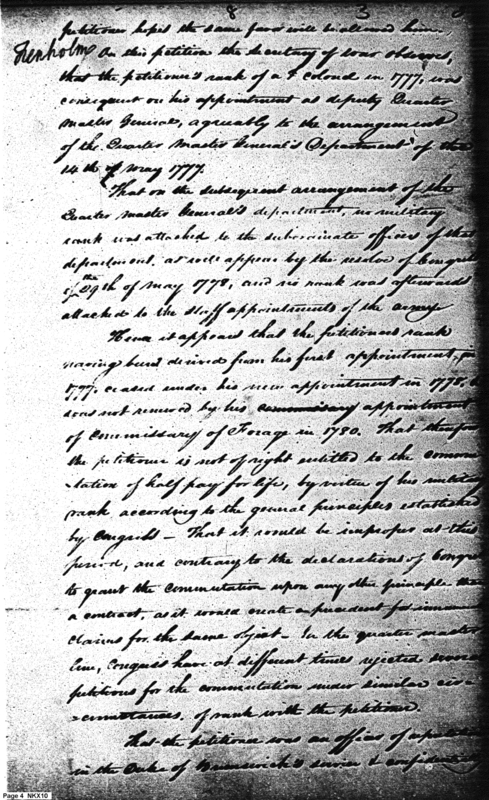 8 3
petitioner hopes the same favor will be allowed him.
Trenholm On this petition the Secretary of War observes,
that the petitioner's rank of a Lt Colonel in 1777, was
consequent on his appointment as deputy Quarter
Master General, agreeably to the arrangement
of the Quarter Master General's Department of the
14th of May 1777.
That on the subsequent arrangement of the
Quarter Master General's department, no military
rank was attached to the subordinate offices of that
department, as will appear by the resolve of Congress
of the 29th of May 1778, and no rank was afterwards
attached to the staff appointments of the army
Hence it appears that the petitioners rank
having been derived from his first appointment, in
1777, ceased under his new appointment in 1778,
was not renewed by his appointment
of Commissary of Forage in 1780. That therefore
the petitioner is not of right entitled to the commu
-tation of half pay for life, by virtue of his military
rank according to the general principles established
by Congress - That it would be improper at this
period, and contrary to the declarations of Congress
to grant the commutation upon any other principle than
a contract, as it would create a precedent for
claims for the same object - In the quarter master
line, Congress have at different times rejected several
petitions for the commutation under similar cir
-cumstances, of rank with the petitioner.
That the petitioner was an officer of
in the Duke of Brunswick's service &
Page 4 NKX10